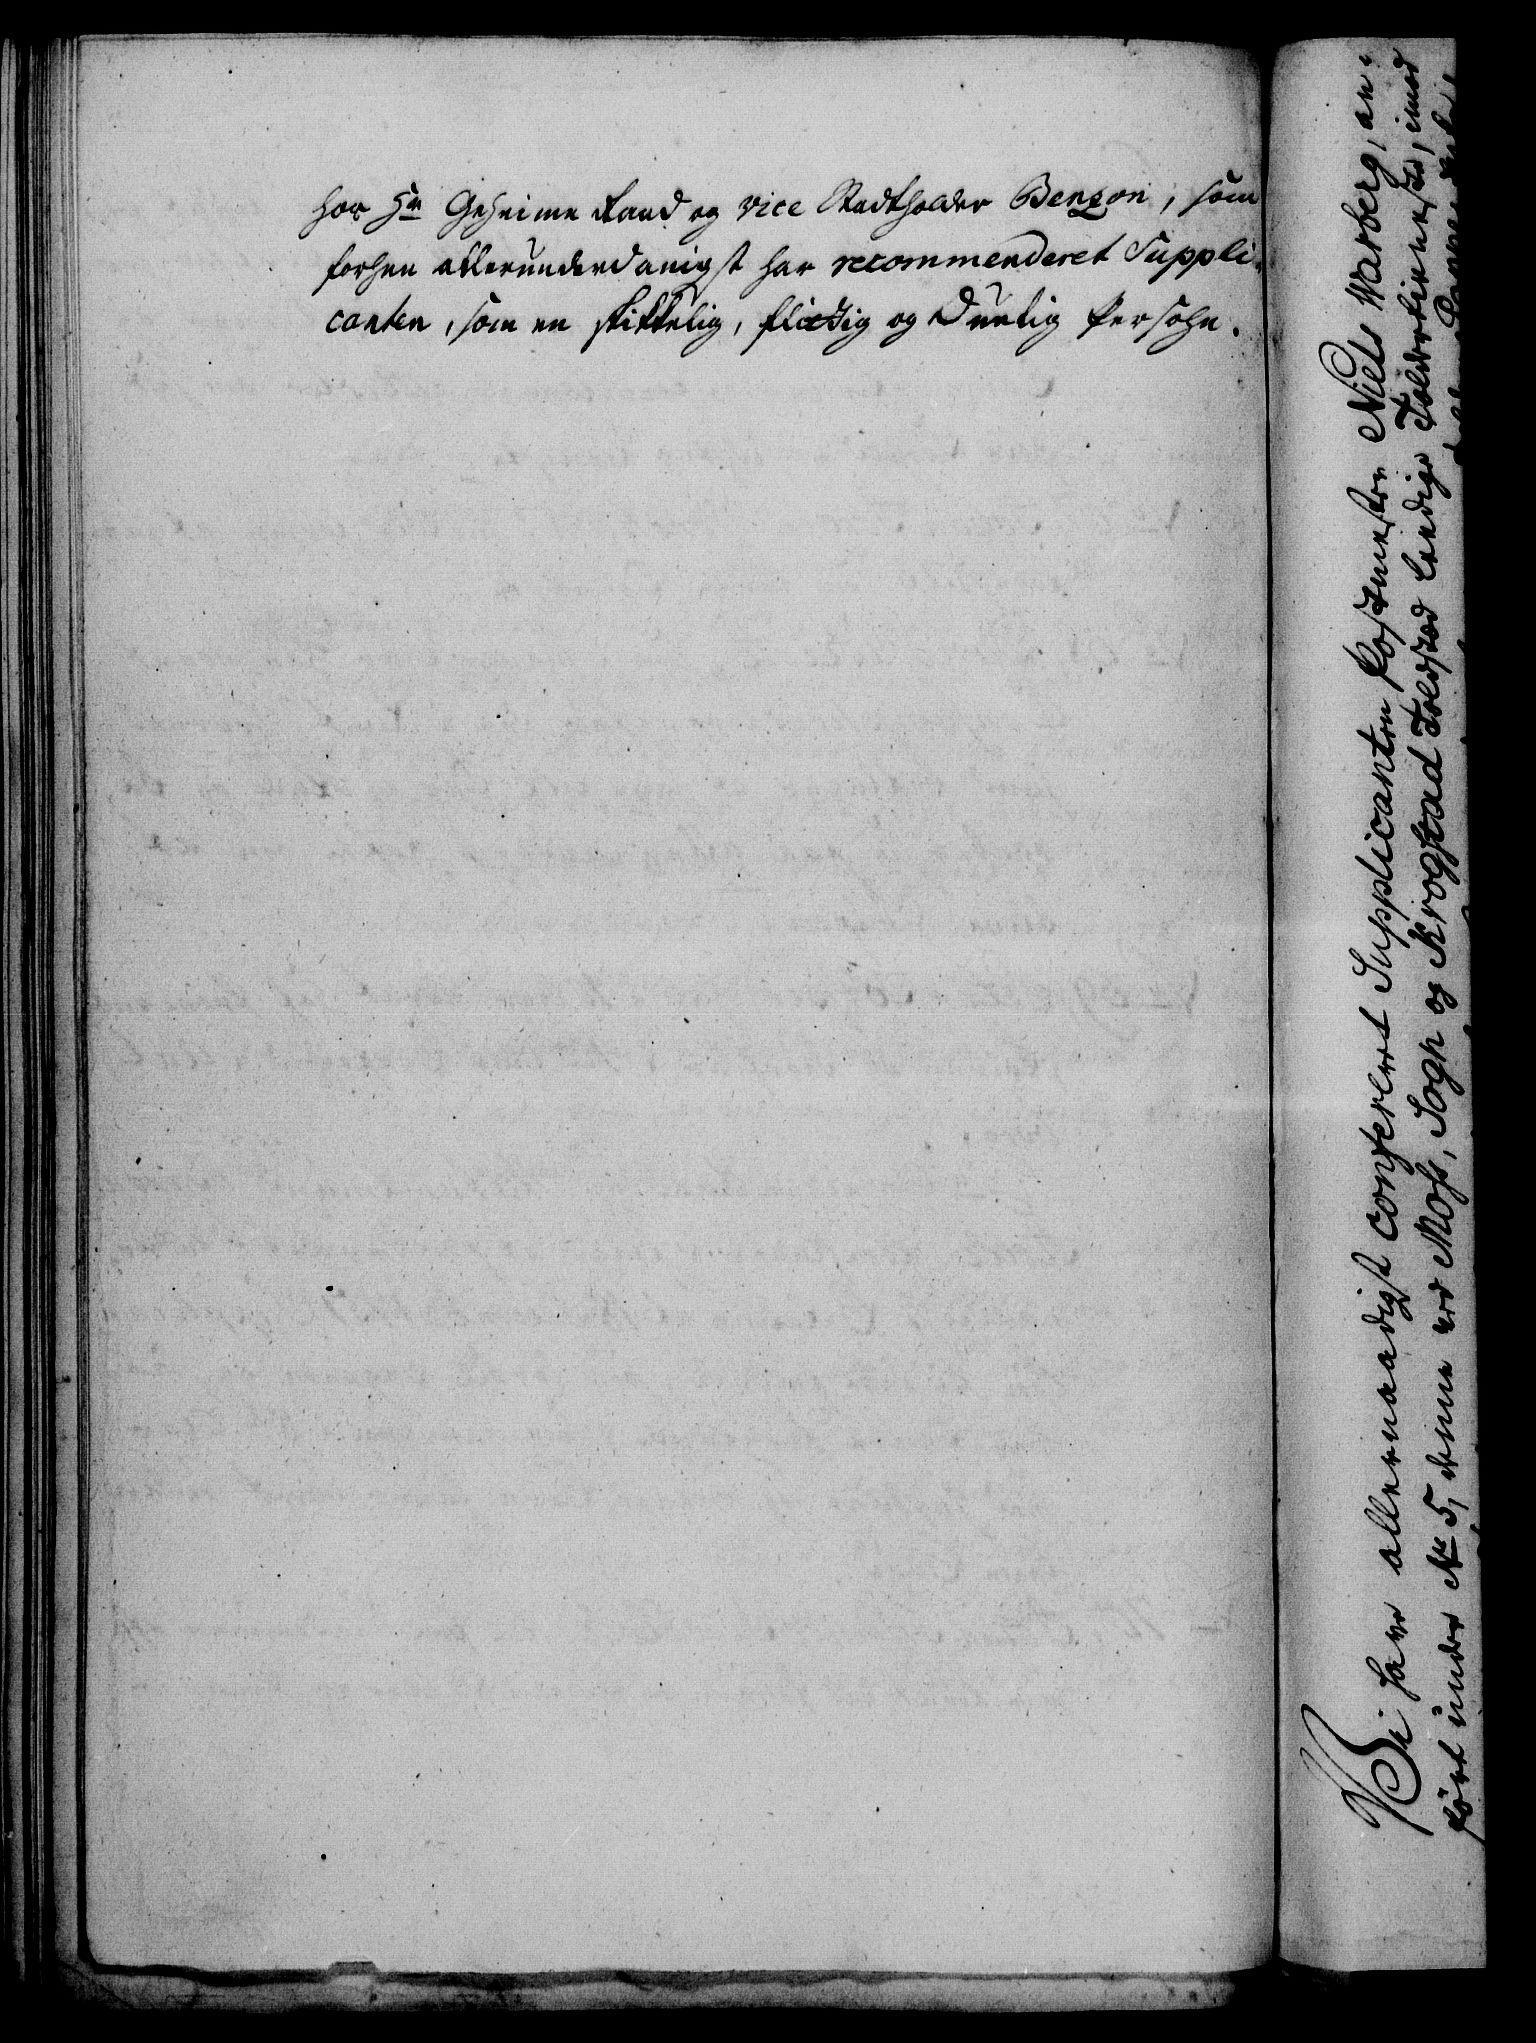 hos Hr Geheime Raad og vice Stadtholder Benzon, som
forhen allerunderdanigst har recommenderet Suppli-
canten, som en skikkelig, flittig og duelig Persohn.
Vi have allernaadigst confereret Supplicanten Postmester Niels Warberg, an-
ført under No 5, denne ved Moss, Sogn og Krogstad Toldsted ledige Toldertieneste, imod